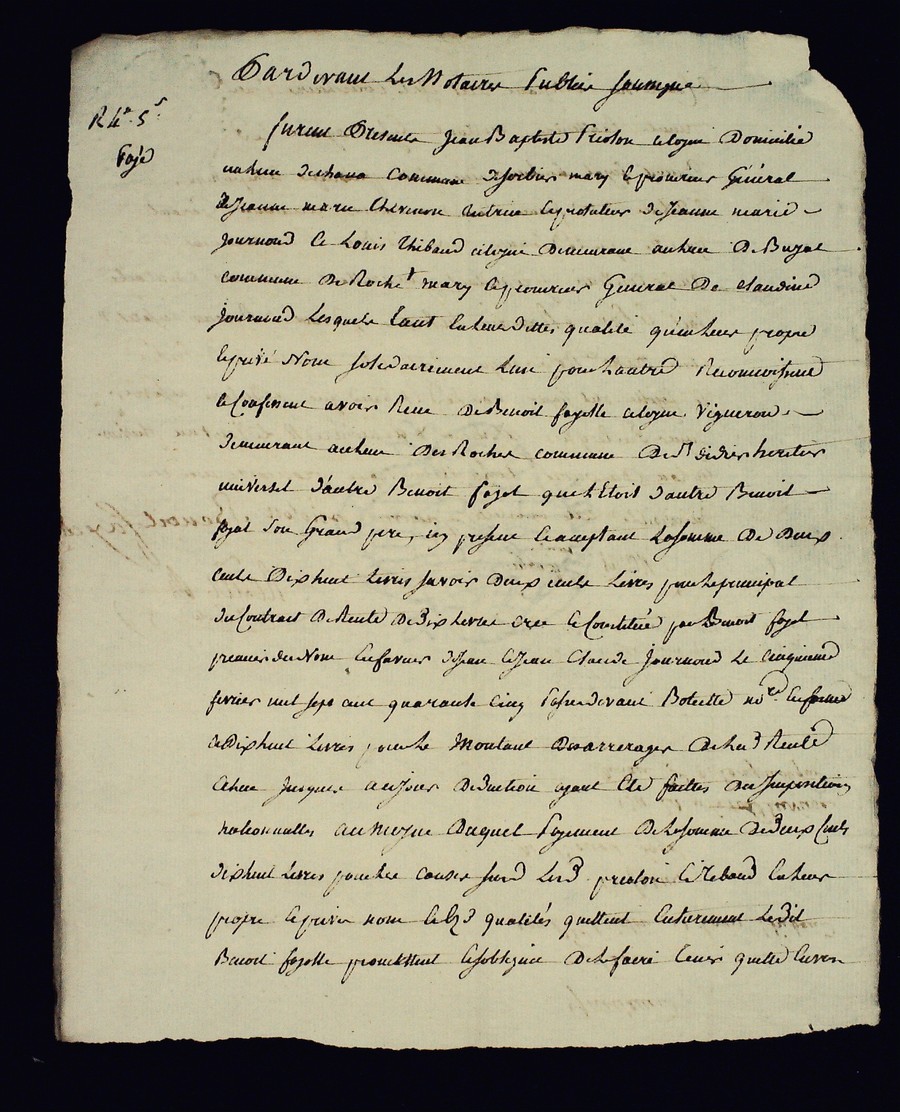 Pardevant Les Notaires Publics soussignes
R 4# 5s
Payé
furent Présents Jean Baptiste Prioton citoyen Domicilié
au lieu commune de sorbier mary et procureur Général
de Jeanne marie heritiere de Jeanne marie
Journoud et Louis Thibaud citoyen Demeurant au lieu De Buzat
commune De Roche mary et procureur Général De claudine
Journoud Lesquels tant en leurdittes qualité qu'en leur propre
et privé Nom solidairement L'un pour L'autre Reconnoissent
et Confessent avoir Reçu De Benoit fayolle citoyen Vigneron
Demeurant au lieu Des Roches commune De St didier heritier
universel d'autre Benoit fayol qui L'Etoit d'autre Benoit
fayol son Grand pere, icy present et acceptant La somme De Deux
cents Dixhuit Livres savoir Deux cents Livres pour Le principal
du Contrat De Rente De Dix Livres créé et Constitué par Benoit fayol
premier du Nom en faveur de Jean et Jean Claude Journoud Le cinquieme
fevrier mil sept cent quarante cinq Passé devant nore en forme
et Dixhuit Livres pour Le Montant Des arrerages De La d Rente
échus Jusques aujour Deduction ayant été faittes Des Impositions
nationnalles au moyen Duquel Payement De La somme De Deux Cents
dixhuit Livres pour les causes susd Lesd prioton et Thibaud en leur
propre et privé nom et esd qualités quittent Entierement Ledit
Benoit fayolle promettent et s'obligent De Le faire tenir quitte Envers